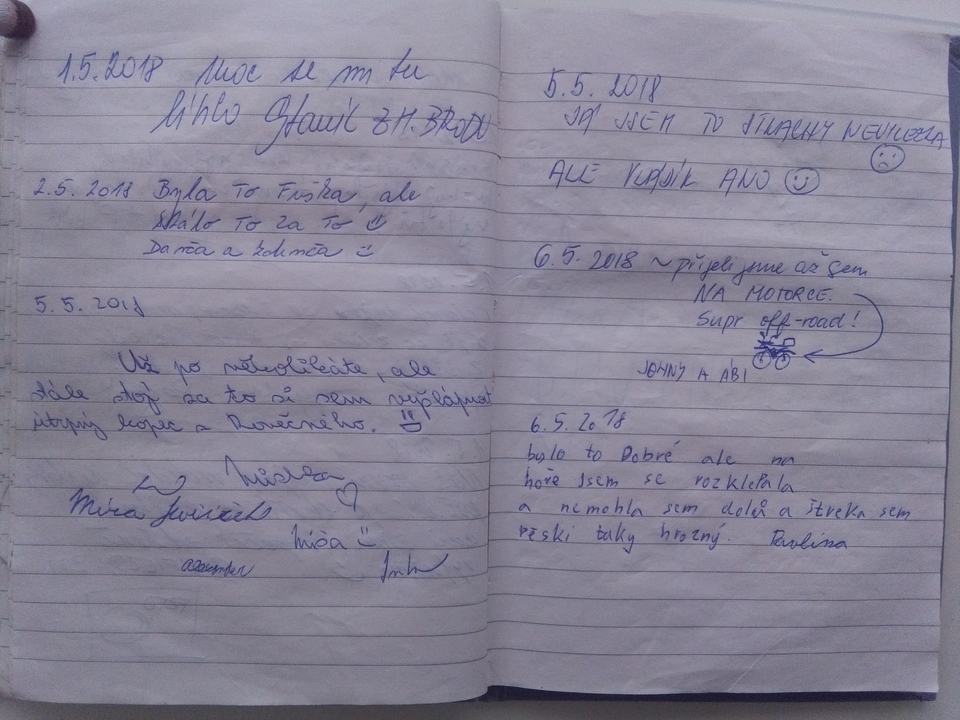 1.5.2018 Moc se mi tu
líbilo Z H. BRODU
2.5.2018 Byla to Fuška, ale
stálo to za to
Danča a
5.5.2018
Už po několikáté, ale
stále stojí za to si sem vyšlápnout
strmý kopec z Rovečného.
Míra
Míša
alexander
5.5.2018
JÁ JSEM TO STRACHY NEVYLEZLA
ALE VLADÍK ANO
6.5.2018 ~ přijeli jsme až sem
NA MOTORCE.
Supr off-road!
JOHNY A ÁBI
6.5.2018
bylo to Dobré ale na
hoře jsem se rozklepala
a nemohla sem dolů a štreka sem
pěski taky hrozný. Pavlína